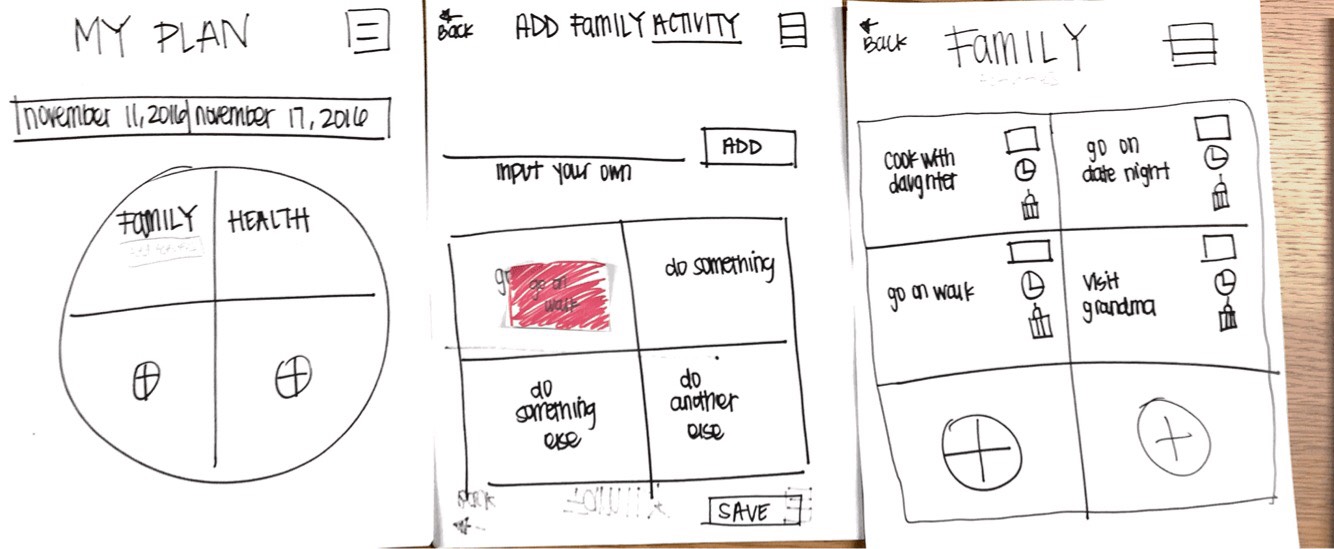 MY PLAN
november 11, 2016 november 17, 2016
FAMILY HEALTH
BACK
ADD FAMILY ACTIVITY
ADD
input your own
go
go on
walk
do something
do
something
else
do
another
else
SAVE
BACK
FAMILY
cook with
daughter
go on
date night
go on walk
visit
grandma